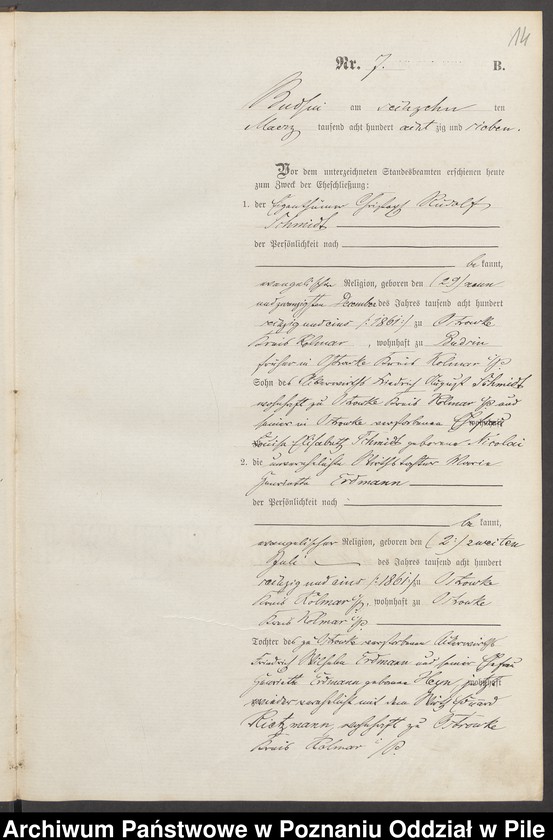 14
Nr. 7. B.
Budsin am sechszehn ten
Maerz tausend acht hundert acht zig und sieben.
Vor dem unterzeichneten Standesbeamten erschienen heute
zum Zweck der Eheschließung:
1. der Eigenthümer Christoph Rudolf
Schmidt
der Persönlichkeit nach
be kannt,
evangelischer Religion, geboren den (29) neun
undzwanzigsten December des Jahres tausend acht hundert
sechzig und eins /:1861:/ zu Ostrowke
Kreis Kolmar, wohnhaft zu Budsin
früher in Ostrowke Kreis Kolmar i/P.
Sohn des Altenwirths Friedrich August Schmidt
wohnhaft zu Ostrowke Kreis Kolmar i/P und
seiner in Ostrowke verstorbenen Ehefrau
Louise Elisabeth Schmidt geborene Nicolai
2. die unverehelichte Wirthstochter Marie
Henriette Erdmann
der Persönlichkeit nach
be kannt,
evangelischer Religion, geboren den (2:) zweiten
Juli des Jahres tausend acht hundert
sechzig und eins /:1861:/ zu Ostrowke
Kreis Kolmar i/P., wohnhaft zu Ostrowke
Kreis Kolmar i/P.
Tochter des zu Ostrowke verstorbenen Altenwirths
Friedrich Wilhelm Erdmann und seiner Ehefrau
Henriette Erdmann geborene Heyn
wieder verehelicht mit dem Wirth Eduard
Rietzmann, wohnhaft zu Ostrowke
Kreis Kolmar i/P.
Archiwum Państwowe w Poznaniu Oddział w Pile